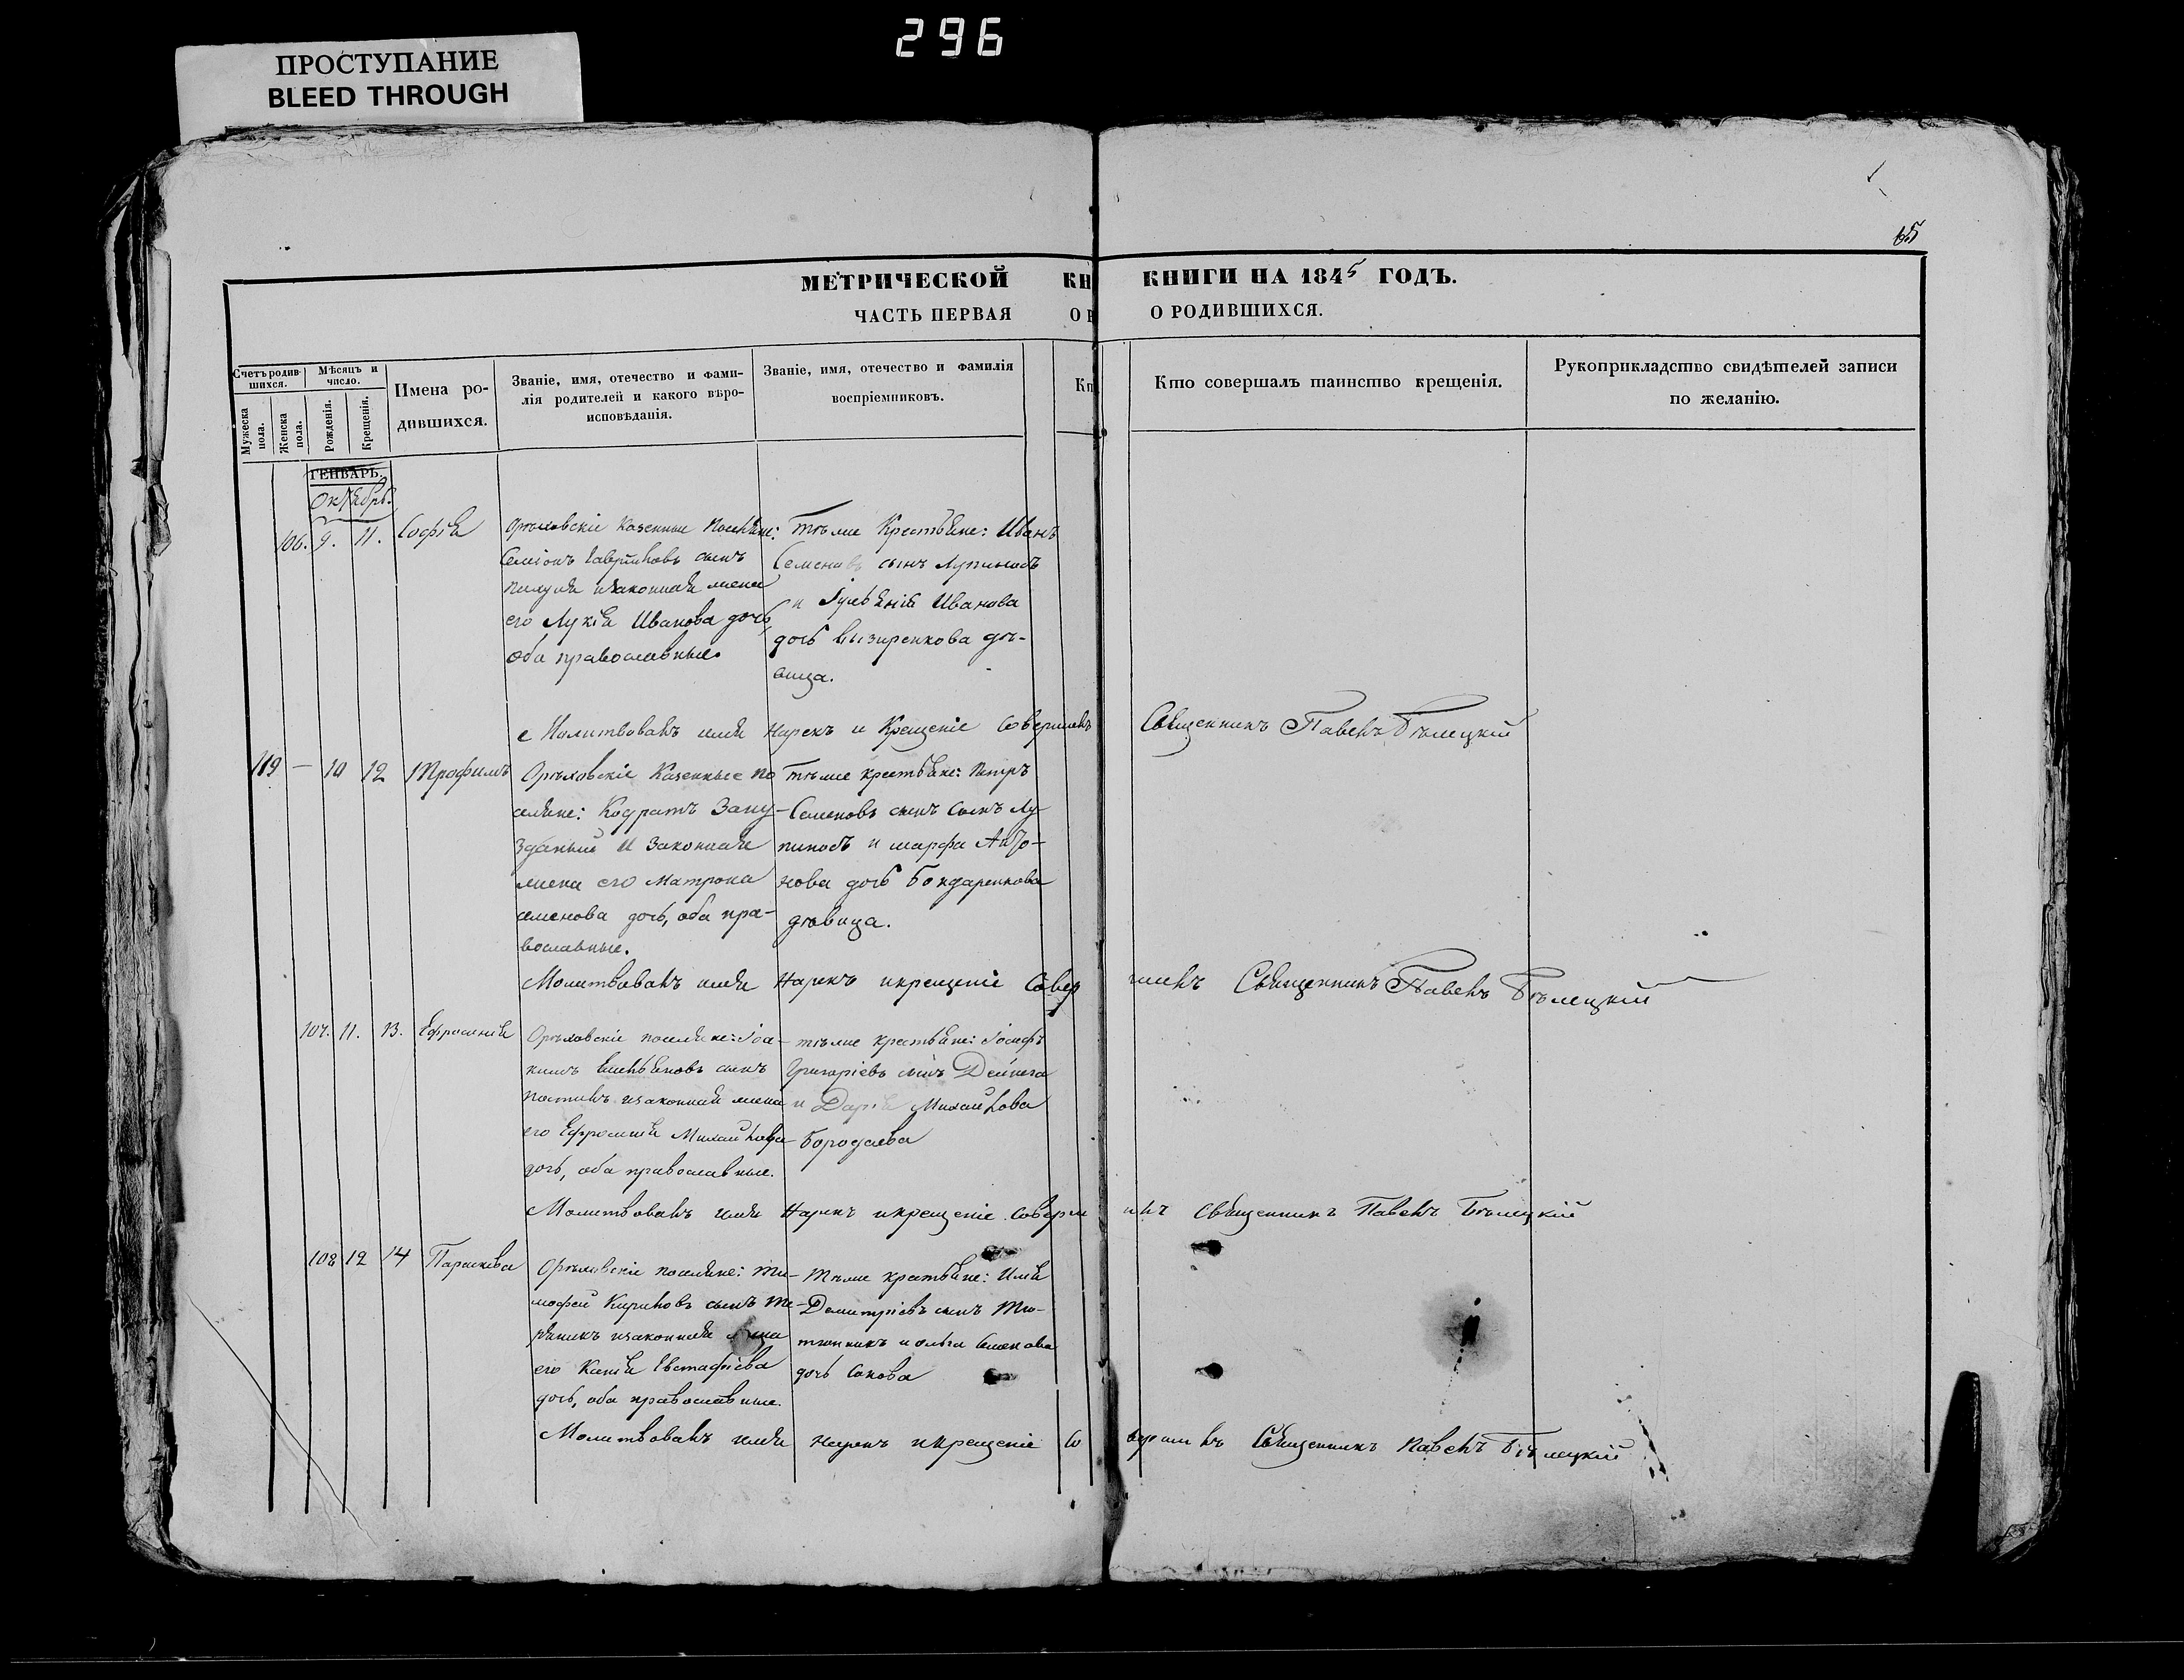 296
ПРОСТУПАНИЕ
BLEED THROUGH
65
МЕТРИЧЕСКОЙ КН КНИГИ НА 1845 ГОДЪ.
ЧАСТЬ ПЕРВАЯ О Р О РОДИВШИХСЯ.
Счетъ родив-
шихся.
Мужеска пола.
Женска пола.
Мѣсяцъ и
число.
Рожденія.
Крещенія.
Имена ро-
дившихся.
Званіе, имя, отечество и фами-
лія родителей и какого вѣро-
исповѣданія.
Званіе, имя, отечество и фамилія
воспріемниковъ.
Кт
Кто совершалъ таинство крещенія.
Рукоприкладство свидѣтелей записи
по желанію.
ГЕНВАРЬ.
Октябрь.
106. 9. 11. Софія
Орѣховскіе казенные поселяне:
Семіонъ Гавриловъ сынъ
изаконная жена
его Лукія Иванова дочь,
оба православные.
тѣ же Крестьяне: Иванъ
Семеновъ сынъ Лупиносъ
и Іуліянія Иванова
дочь Визиренкова дѣ-
вица.
Молитвовалъ имя Нарекъ и Крещеніе Совершилъ Священникъ Павелъ Бѣлецкій
119 — 10 12 Трофимъ
Орѣховскіе Казенные по
селяне: Кодратъ Зану-
зданый и Законная
жена его Матрона
Семенова дочь, оба пра-
вославные.
тѣ же крестьяне: Петръ
Семеновъ сынъ Сынъ Лу-
пиносъ и марфа Анто-
нова дочь Бондаренкова
дѣвица.
Молитвовалъ имя Нарекъ икрещеніе Совер шилъ Священникъ Павелъ Бѣлецкій
107. 11. 13. Ефросинія
Орѣховскіе поселяне: Іоа-
кимъ Емельяновъ сынъ
изаконная жена
его Ефросинія Михайлова
дочь, оба православные.
тѣ же крестьяне: Іосифъ
Григоріевъ сынъ Дейнега
и Дарія Михайлова
Бородаева
Молитвовалъ имя Нарекъ икрещеніе Соверши илъ Священникъ Павелъ Бѣлецкій
108 12 14 Параскева
Орѣховскіе поселяне: Ти-
мофей Кириловъ сынъ Те-
изаконная жена
его Ксенія Евстафіева
дочь, оба православные.
Тѣ же крестьяне: Илія
Димитріевъ сынъ Тю-
тюнникъ и ольга Семенова
дочь Сокова
Молитвовалъ имя нарекъ икрещеніе Со вершилъ Священникъ Павелъ Бѣлецкій